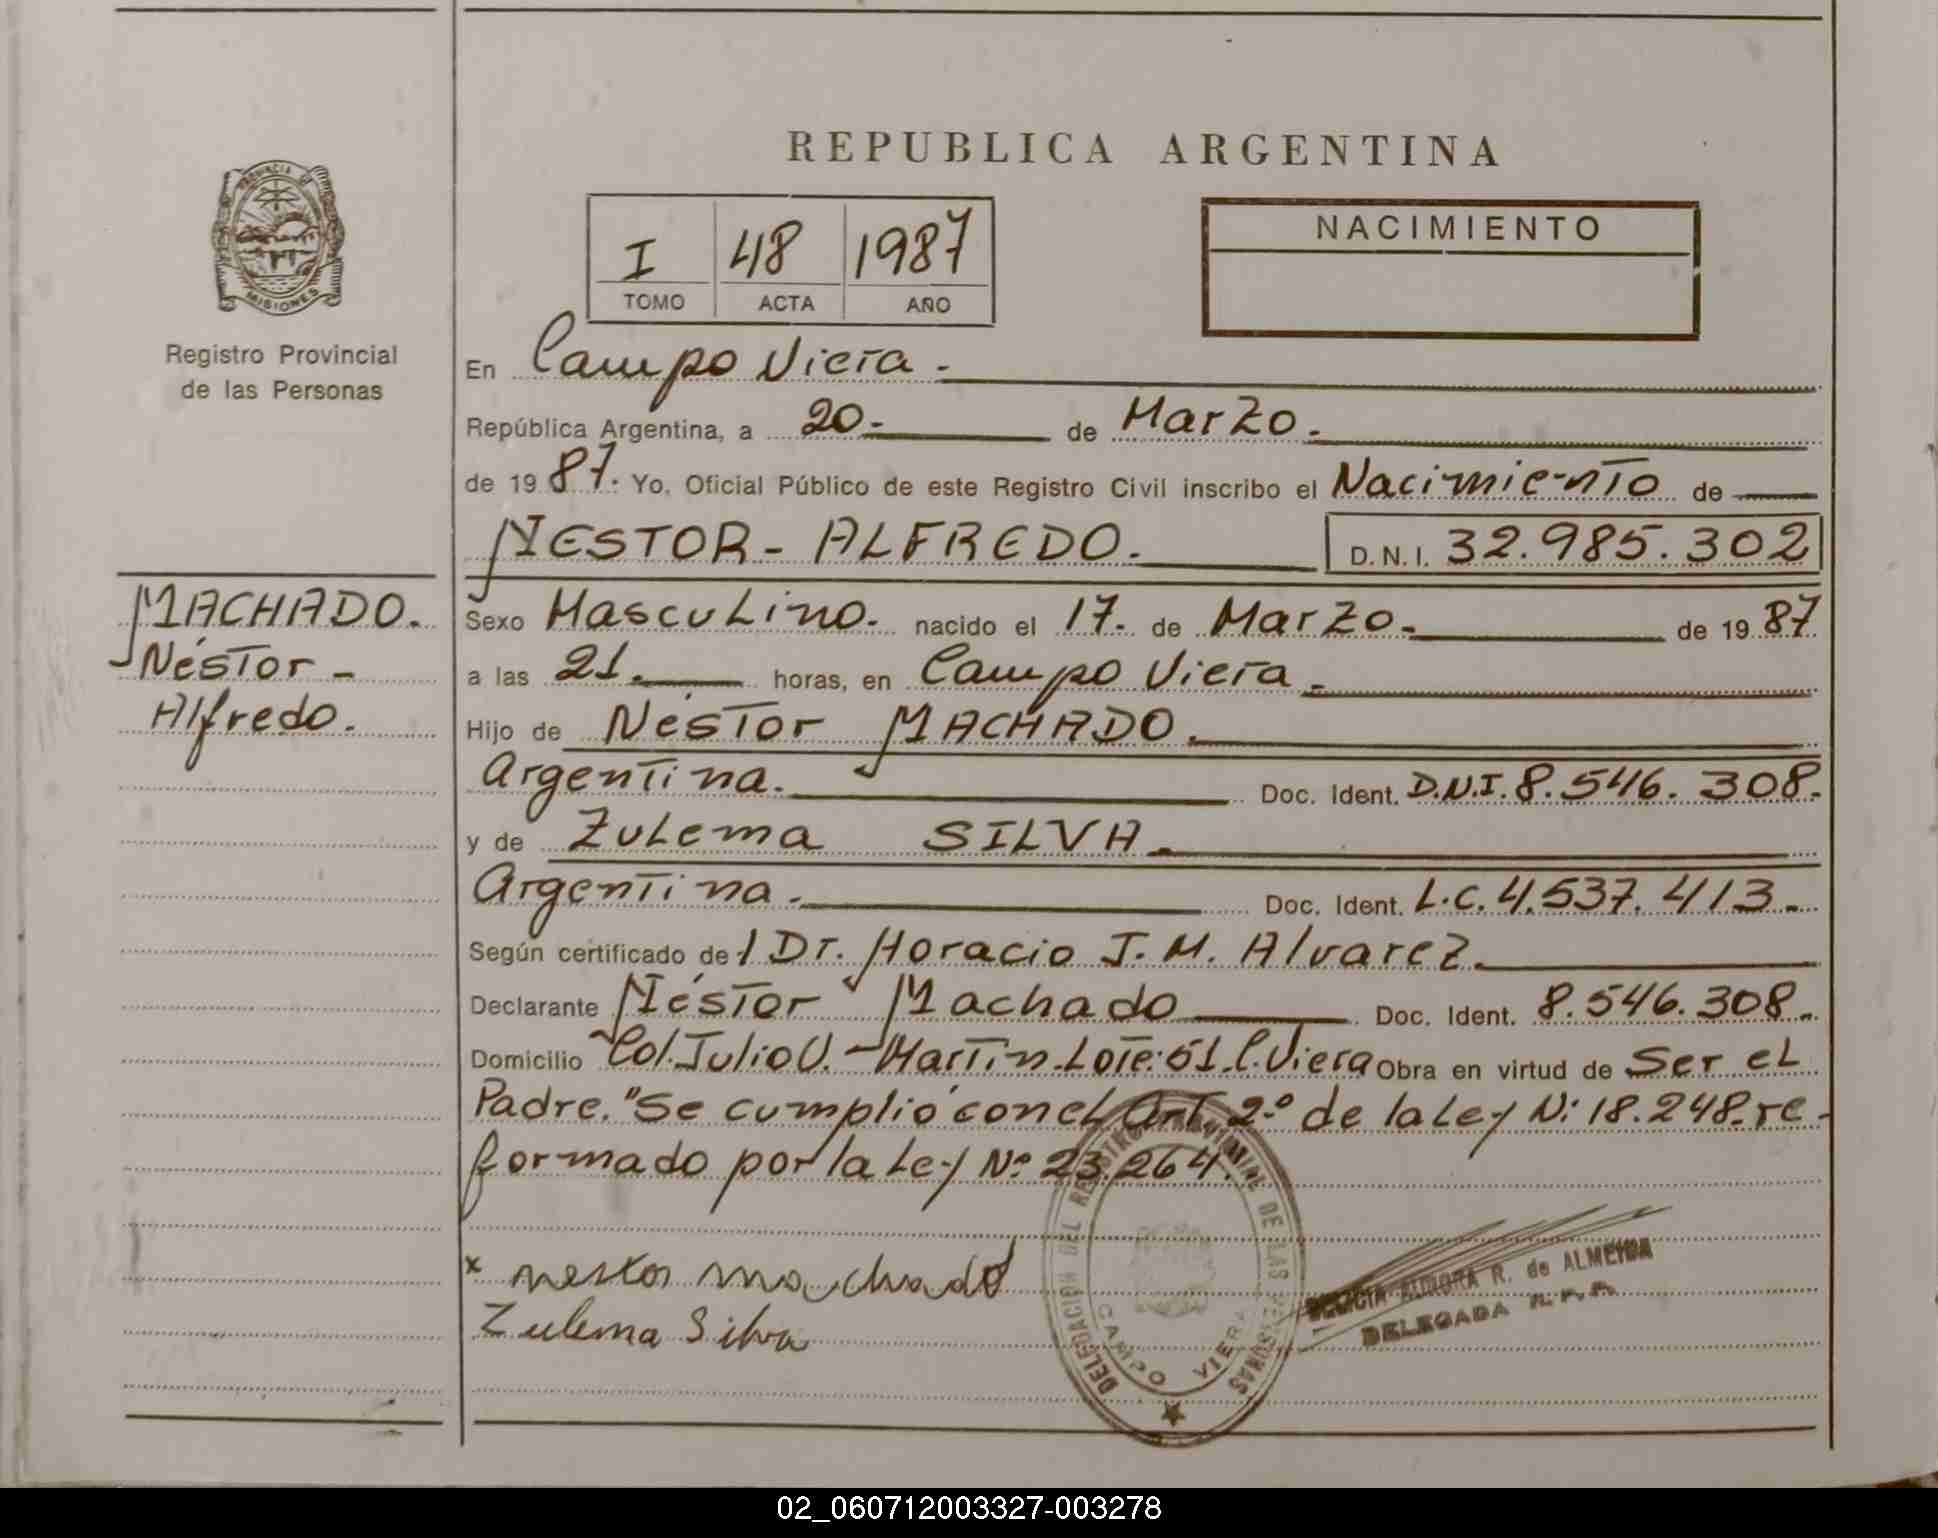 REPUBLICA ARGENTINA
PROVINCIA DE
MISIONES
Registro Provincial
de las Personas
I 48 1987
TOMO ACTA AÑO
NACIMIENTO
En Campo Viera.
República Argentina, a 20.- de Marzo.
de 19 87. Yo, Oficial Público de este Registro Civil inscribo el Nacimiento de
NESTOR - ALFREDO. D.N.I. 32.985.302
MACHADO.
Néstor -
Alfredo.
Sexo Masculino. nacido el 17. de Marzo. de 19 87
a las 21. horas, en Campo Viera.
Hijo de Néstor MACHADO.
Argentina. Doc. Ident. D.N.I. 8.546.308.
y de Zulema SILVA.
Argentina. Doc. Ident. L.C. 4.537.413.
Según certificado de l Dr. Horacio J. M. Alvarez.
Declarante Néstor Machado Doc. Ident. 8.546.308.
Domicilio Col. Julio U. Martin Lote: 51 C. Viera Obra en virtud de Ser el
Padre. "Se cumplió con el Art. 2º de la Ley Nº 18.248. re-
formado por la Ley Nº 23.264.
x nestor machado
Zulema Silva
DELEGACION DEL REGISTRO PROVINCIAL DE LAS PERSONAS
CAMPO VIERA
R. de ALMEIDA
DELEGADA R. P. P.
02_060712003327-003278